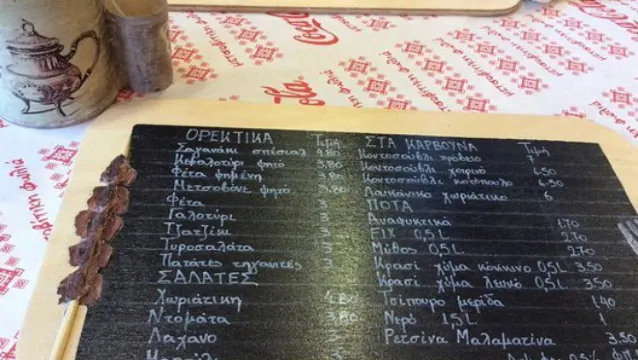 Coca-Cola
μετσοβίτικη φωλιά
ΟΡΕΚΤΙΚΑ Τιμή
Σαγανάκι σπέσιαλ 4.80
Κεφαλοτύρι ψητό 3.80
Φέτα ψημένη 3.80
Μετσοβόνε ψητό 3.80
Φέτα 3
Γαλοτύρι 3
Τζατζίκι 3
Τυροσαλάτα 3
Πατάτες τηγανιτές 3
ΣΑΛΑΤΕΣ
Χωριάτικη 4.80
Ντομάτα 3.80
Λάχανο
ΣΤΑ ΚΑΡΒΟΥΝΑ Τιμή
Κοντοσούβλι πρόβειο 7
Κοντοσούβλι χοιρινό 6.50
Κοντοσούβλι κοτόπουλο 6.50
Λουκάνικο χωριάτικο 6
ΠΟΤΑ
Αναψυκτικά 1.70
FIX 0,5 L 2.70
Μύθος 0,5 L 2.70
Κρασί χύμα κόκκινο 0,5L 3.50
Κρασί χύμα λευκό 0,5L 3.50
Τσίπουρο μερίδα 1.40
Νερό 1,5L 1
Ρετσίνα Μαλαματίνα 3.50